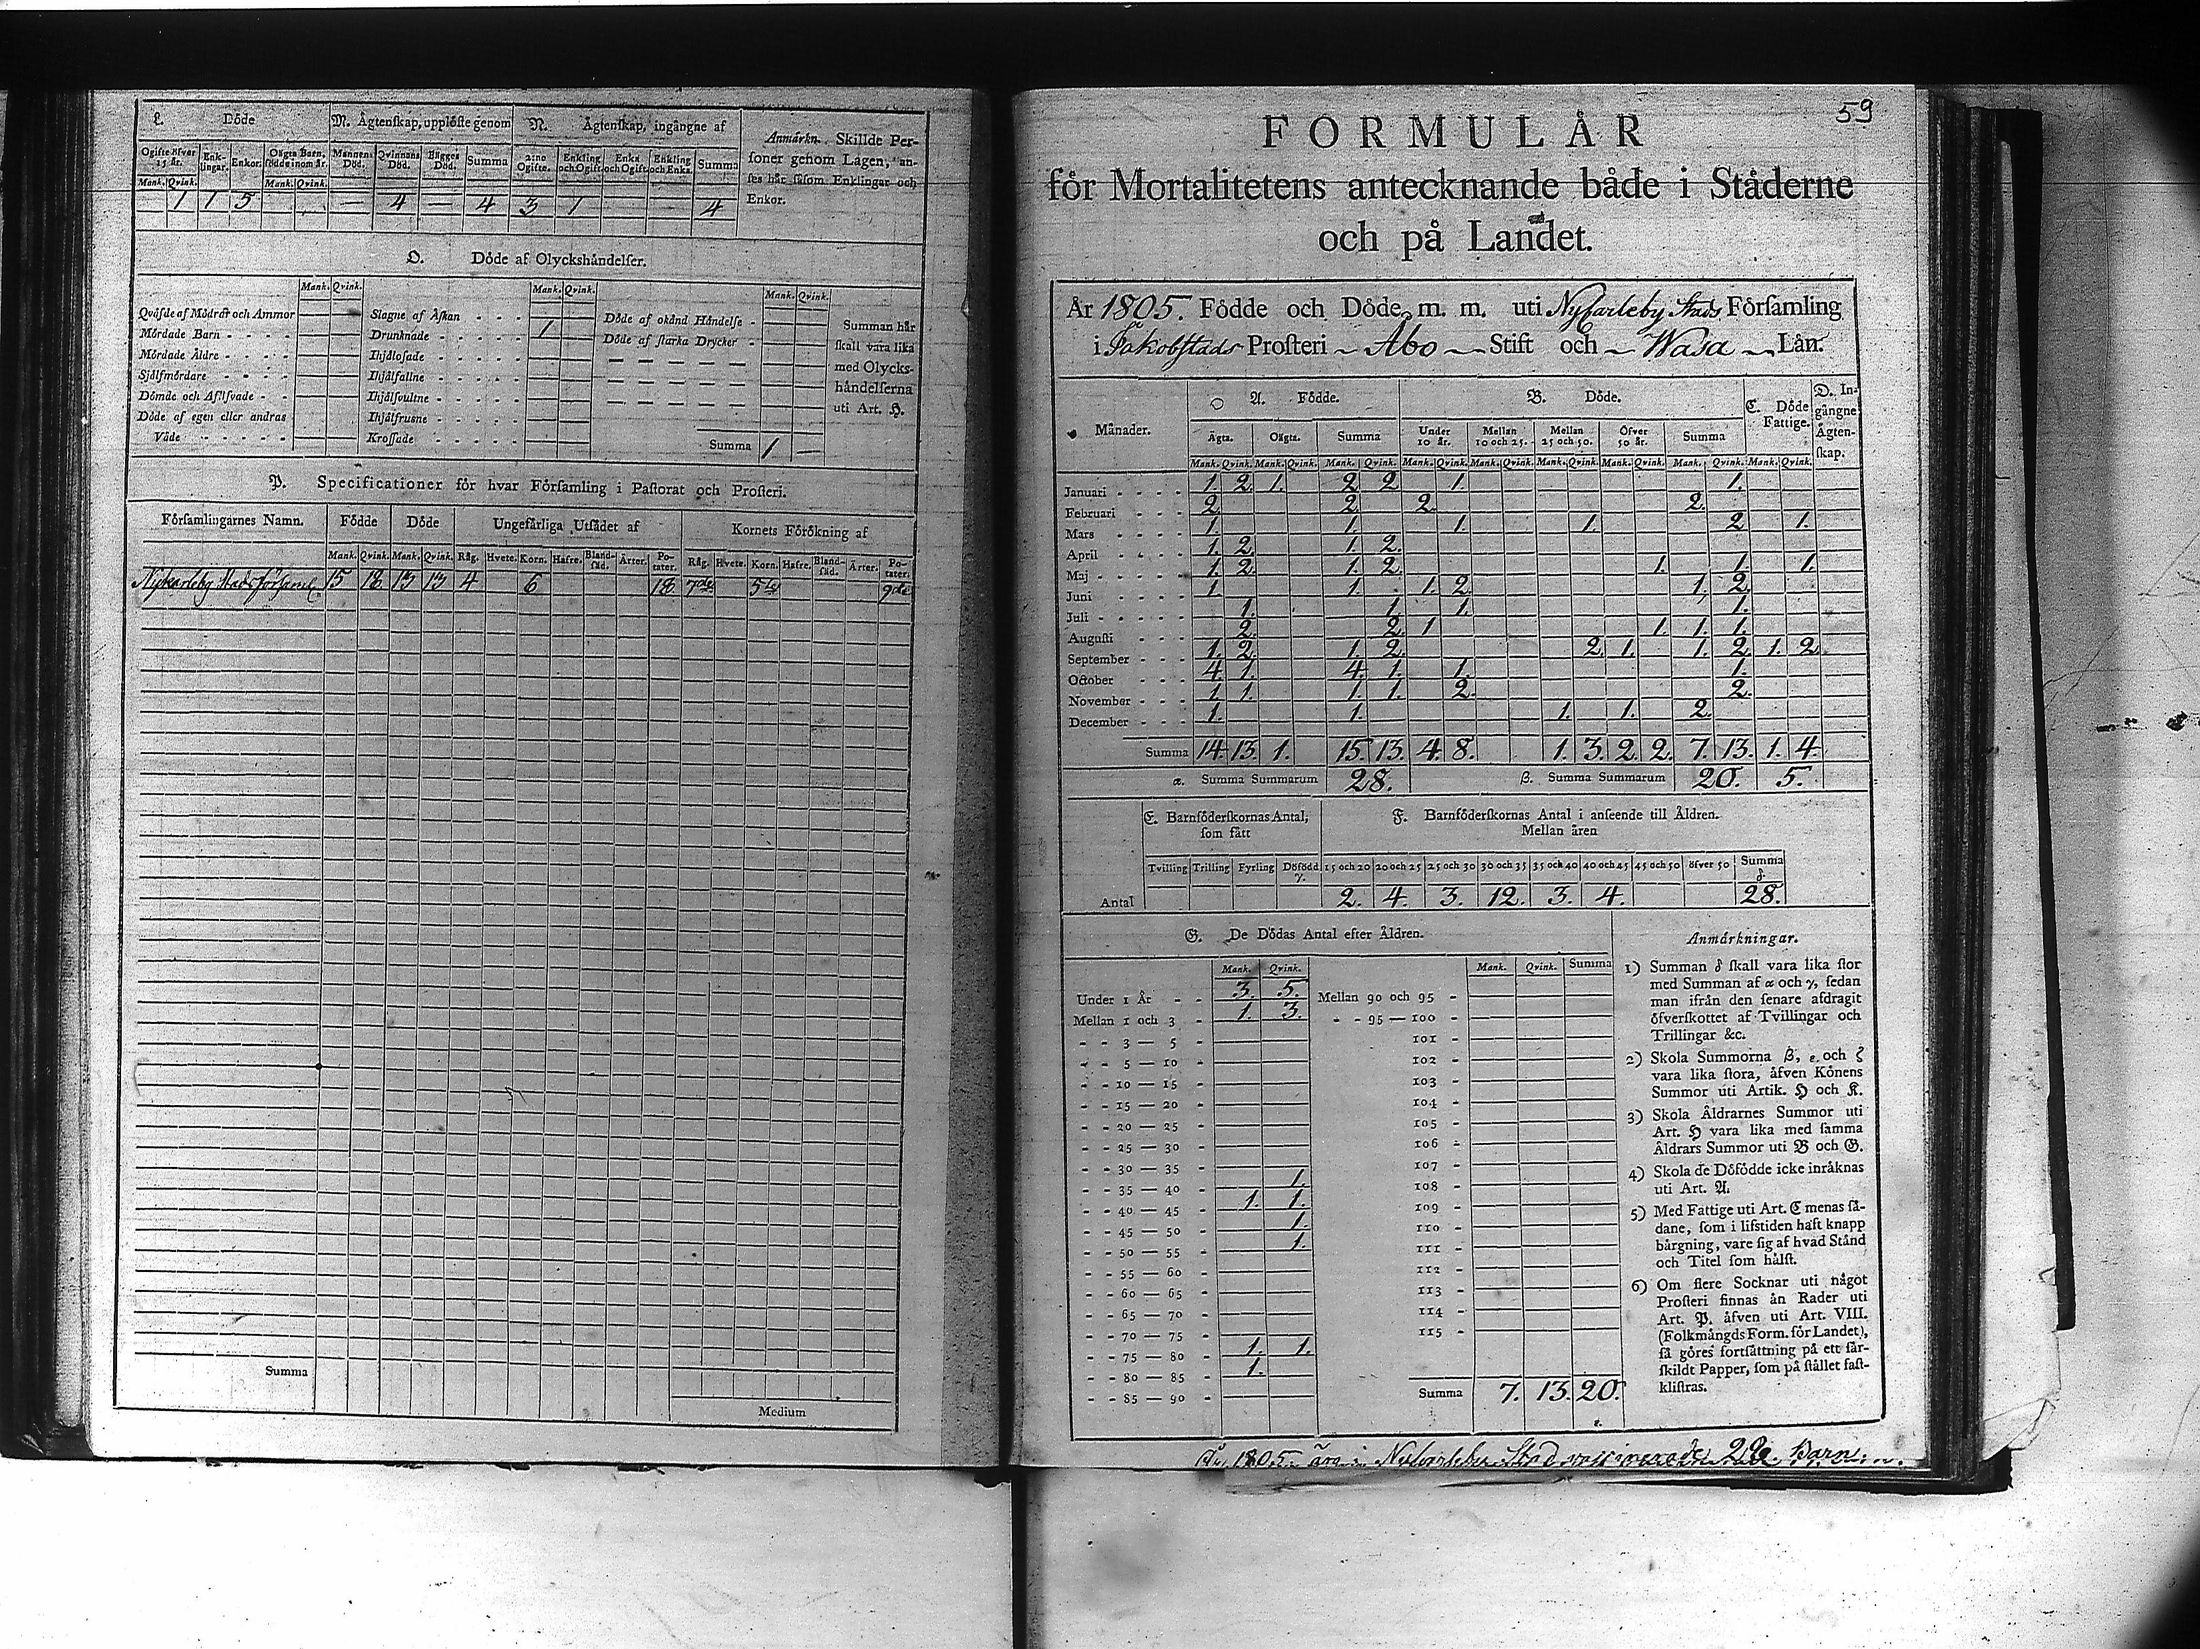 L. Döde
M. Ägtenskap, upplöste genom
N. Ägtenskap, ingångne af
Anmärkn. Skillde Personer genom Lagen, anses här såsom Enklingar och Enkor.
Ogifte öfver 15 år. Enklingar. Enkor. Oägta Barn, födde inom år. Mannens Död. Qvinnans Död. Bägges Död. Summa 2:ne Ogifte. Enkling och Ogift. Enka och Ogift. Enkling och Enka. Summa
Mank. Qvink. Mank. Qvink.
1 1 5 — 4 — 4 3 1 — 4
O. Döde af Olyckshändelser.
Mank. Qvink. Mank. Qvink. Mank. Qvink.
Qväfde af Mödrar och Ammor
Mördade Barn - - - -
Mördade Äldre - - - -
Sjelfmördare - - - -
Dömde och Aflifvade - -
Döde af egen eller andras
Våde - - - - -
Slagne af Åskan - - -
Drunknade - - - - - 1
Ihjälosade - - - - -
Ihjälfallne - - - - -
Ihjälsvultne - - - - -
Ihjälfrusne - - - - -
Krossade - - - - -
Döde af okänd Händelse -
Döde af starka Drycker -
Summa 1 —
Summan här
skall vara lika
med Olycks-
händelserna
uti Art. H.
P. Specificationer för hvar Församling i Pastorat och Prosteri.
Församlingarnes Namn. Födde Döde Ungefärliga Utsädet af Kornets Förökning af
Mank. Qvink. Mank. Qvink. Råg. Hvete. Korn. Hafre. Bland-säd. Ärter. Po-tater. Råg. Hvete. Korn. Hafre. Bland-säd. Ärter. Po-tater.
15 18 13 13 4 6 18 7de 5te 9de
Summa
Medium
59
FORMULÄR
för Mortalitetens antecknande både i Städerne
och på Landet.
År 1805. Födde och Döde m. m. uti Nykarleby Stads Församling
i Jakobstads Prosteri Åbo Stift och Wasa Län.
Månader. A. Födde. B. Döde. C. Döde Fattige. D. Ingångne Ägtenskap.
Ägta. Oägta. Summa Under 10 år. Mellan 10 och 25. Mellan 25 och 50. Öfver 50 år. Summa
Mank. Qvink. Mank. Qvink. Mank. Qvink. Mank. Qvink. Mank. Qvink. Mank. Qvink. Mank. Qvink. Mank. Qvink. Mank. Qvink.
Januari - - - - 1. 2. 1. 2. 2. 1. 1.
Februari - - - 2. 2. 2. 2.
Mars - - - - 1. 1. 1. 1. 2 1.
April - - - - 1. 2. 1. 2.
Maj - - - - - 1. 2. 1. 2. 1. 1. 1.
Juni - - - - 1. 1. 1. 2. 1. 2.
Juli - - - - - 1. 1. 1. 1.
Augusti - - - 2. 2. 1 1. 1. 1.
September - - - 1. 2. 1. 2. 2. 1. 1. 2. 1. 2.
October - - - 4. 1. 4. 1. 1. 1.
November - - - 1. 1. 1. 1. 2. 2.
December - - - 1. 1. 1. 1. 2.
Summa 14. 13. 1. 15. 13. 4. 8. 1. 3. 2. 2. 7. 13. 1. 4.
α. Summa Summarum 28. β. Summa Summarum 20. 5.
E. Barnföderskornas Antal, som fått
F. Barnföderskornas Antal i anseende till Åldren.
Mellan åren
Tvilling Trilling Fyrling Dödfödd γ. 15 och 20 20 och 25 25 och 30 30 och 35 35 och 40 40 och 45 45 och 50 öfver 50 Summa δ
Antal 2. 4. 3. 12. 3. 4. 28.
G. De Dödas Antal efter Åldren.
Mank. Qvink. Mank. Qvink. Summa
Under 1 År - - 3. 5. Mellan 90 och 95 -
Mellan 1 och 3 - 1. 3. - - 95 — 100 -
- - 3 — 5 - 101 -
- - 5 — 10 - 102 -
- - 10 — 15 - 103 -
- - 15 — 20 - 104 -
- - 20 — 25 - 105 -
- - 25 — 30 - 106 -
- - 30 — 35 - 107 -
- - 35 — 40 - 1. 108 -
- - 40 — 45 - 1. 1. 109 -
- - 45 — 50 - 1. 110 -
- - 50 — 55 - 1. 111 -
- - 55 — 60 - 112 -
- - 60 — 65 - 113 -
- - 65 70 - 114 -
- - 70 — 75 - 115 -
- - 75 — 80 - 1. 1.
- - 80 — 85 - 1.
- - 85 — 90 - Summa 7. 13. 20.
ε.
Anmärkningar.
1) Summan δ skall vara lika stor
med Summan af α och γ, sedan
man ifrån den senare afdragit
öfverskottet af Tvillingar och
Trillingar &c.
2) Skola Summorna β, ε och ζ
vara lika stora, äfven Könens
Summor uti Artik. H och K.
3) Skola Åldrarnes Summor uti
Art. H vara lika med samma
Åldrars Summor uti B och G.
4) Skola de Döfödde icke inräknas
uti Art. A.
5) Med Fattige uti Art. C menas så-
dane, som i lifstiden haft knapp
bärgning, vare sig af hvad Stånd
och Titel som hälst.
6) Om flere Socknar uti något
Prosteri finnas än Rader uti
Art. P. äfven uti Art. VIII.
(Folkmängds Form. för Landet),
så göres fortsättning på ett sär-
skildt Papper, som på stället fast-
klistras.
År 1805 äro i Nykarleby Stad vaccinerade 22 Barn